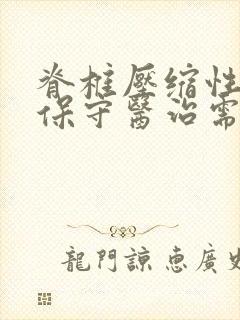 脊椎壓縮性
保守醫治需
龍門諒惠廣